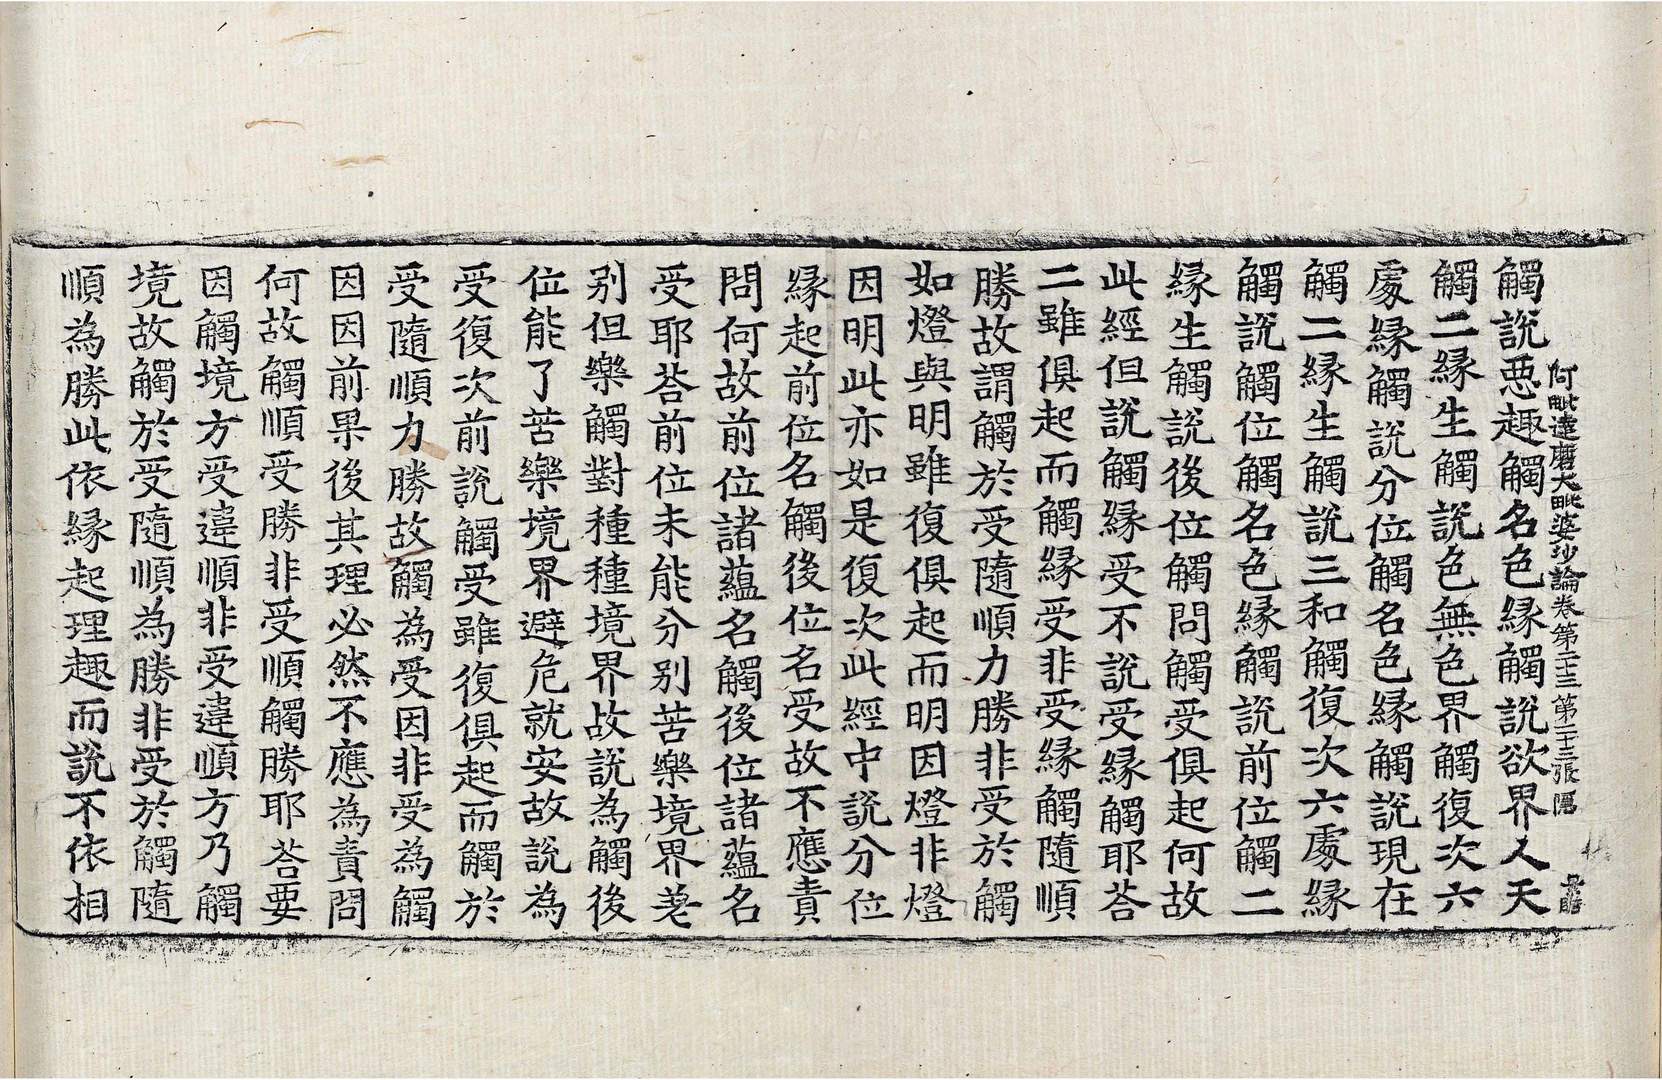 阿毗達磨大毗婆沙論卷第二十三 第二十三張 隱
觸說惡趣觸名色縁觸說欲界人天
觸二縁生觸說色無色界觸復次六
處縁觸說分位觸名色縁觸說現在
觸二縁生觸說三和觸復次六處縁
觸說觸位觸名色縁觸說前位觸二
縁生觸說後位觸問觸受俱起何故
此經但說觸縁受不說受縁觸耶荅
二雖俱起而觸縁受非受縁觸隨順
勝故謂觸於受隨順力勝非受於觸
如燈與明雖復俱起而明因燈非燈
因明此亦如是復次此經中說分位
縁起前位名觸後位名受故不應責
問何故前位諸蘊名觸後位諸蘊名
受耶荅前位未能分别苦樂境界差
别但樂觸對種種境界故說為觸後
位能了苦樂境界避危就安故說為
受復次前說觸受雖復俱起而觸於
受隨順力勝故觸為受因非受為觸
因因前果後其理必然不應為責問
何故觸順受勝非受順觸勝耶荅要
因觸境方受違順非受違順方乃觸
境故觸於受隨順為勝非受於觸隨
順為勝此依縁起理趣而說不依相